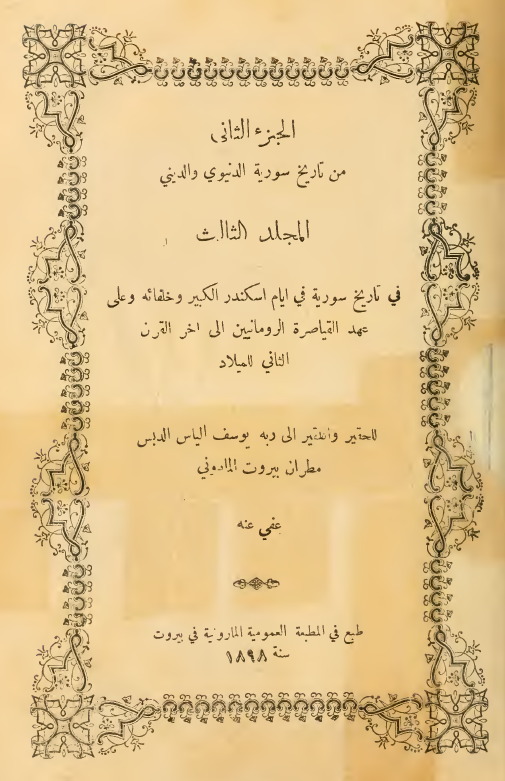 الجزء الثاني
من تاريخ سورية الدنيوي والديني
المجلد الثالث
في تاريخ سورية في ايام اسكندر الكبير وخلفائه وعلى
عهد القياصرة الرومانيين الى اخر القرن
الثاني للميلاد
للحقير والفقير الى ربه يوسف الياس الدبس
مطران بيروت الماروني
عفي عنه
طبع في المطبعة العمومية المارونية في بيروت
سنة ١٨٩٨